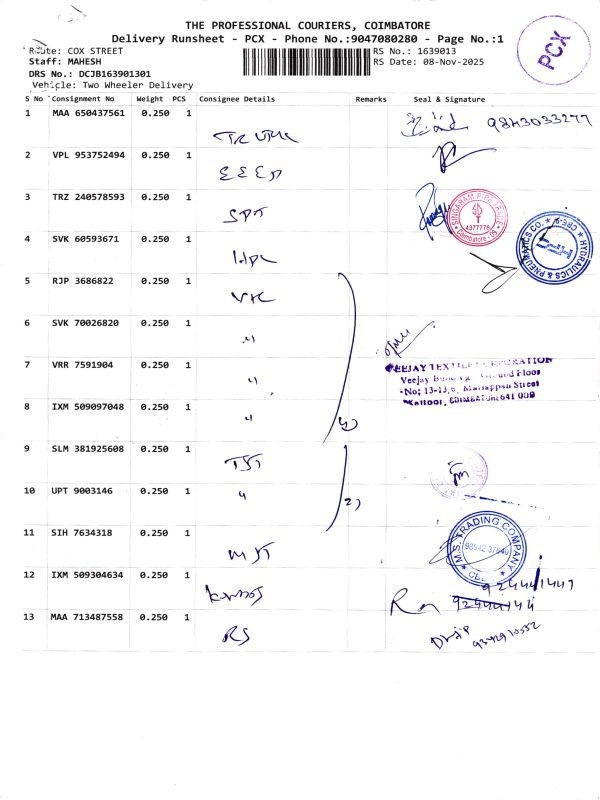 THE PROFESSIONAL COURIERS, COIMBATORE
Delivery Runsheet - PCX - Phone No.:9047080280 - Page No.:1
Route: COX STREET
RS No.: 1639013
Staff: MAHESH
RS Date: 08-Nov-2025
DRS No.: DCJB163901301
Vehicle: Two Wheeler Delivery
PCX
S No Consignment No Weight PCS Consignee Details Remarks Seal & Signature
1 MAA 650437561 0.250 1 9843033277
2 VPL 953752494 0.250 1
3 TRZ 240578593 0.250 1 SPT
SINGARAM PIPE TRADERS
4377778
Coimbatore - 09
4 SVK 60593671 0.250 1
HYDRAULICS & PNEUMATICS CO. CBE-9
5 RJP 3686822 0.250 1 VTC
6 SVK 70026820 0.250 1 "
7 VRR 7591904 0.250 1 "
VEEJAY TEXTILE CORPORATION
Veejay Building Ground Floor
No; 13-13,6, Mariappan Street
Kattoor, COIMBATORE 641 009
8 IXM 509097048 0.250 1 " 4)
9 SLM 381925608 0.250 1 TST
10 UPT 9003146 0.250 1 " 2)
11 SIH 7634318 0.250 1 MST
M.S. TRADING COMPANY
12 IXM 509304634 0.250 1
13 MAA 713487558 0.250 1 RS